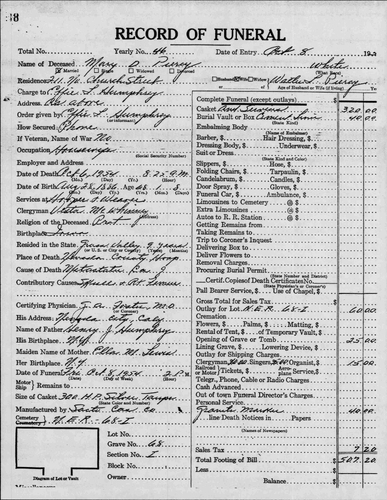 RECORD OF FUNERAL
Total No. Yearly No. 46 Date of Entry Oct. 8 19
Name of Deceased Mary D. Piercy White
Married Single Widowed Divorced (What Race)
Residence 211 No. Church Street Husband or Widow Walter L. Piercy
Age of Husband or Wife (if living)
Charge to Effie L. Humphrey
Address As above
Order given by Effie L. Humphrey
(or informant)
How Secured Phone
If Veteran, Name of War No
Occupation Housewife
(Social Security Number)
Employer and Address
Date of Death Oct 6, 1954 8:25 P.M.
Date of Birth Aug 28, 1886 Age 68 1 8
Services at Hooper & Weaver
Clergyman
Religion of the Deceased Prot
Birthplace Iowa
Resided in the State Grass Valley 9 years
(or U. S. or City or County)
Place of Death Nevada County Hosp
Cause of Death
Contributory Causes
Certifying Physician M.D.
(or Coroner)
His Address Nevada City Calif
Name of Father Henry J. Humphrey
His Birthplace N.Y.
Maiden Name of Mother
Her Birthplace N.Y.
Date of Funeral Fri. Oct. 8, 1954 2 P.M.
(Date) (Day of Week) (Hour)
Motor
Ship Remains to
Size of Casket
(State Color and Number)
Manufactured by Co.
Cemetery
Crematory 68-I
Lot No.
Grave No. 68
Section No. I
Block No.
Owner
Diagram of Lot or Vault
Complete Funeral (except outlays) $
Casket 320 00
Burial Vault or Box 40 00
Embalming Body
(Name of Embalmer)
Barber, $ Hair Dressing, $
Dressing Body, $ Underwear, $
Suit or Dress
(State Kind and Color)
Slippers, $ Hose, $
Folding Chairs, $ Tarpaulin, $
Candelabrum, $ Candles, $
Door Spray, $ Gloves, $
Funeral Car, $ Ambulance, $
Limousines to Cemetery @ $
Extra Limousines @ $
Autos to R. R. Station @ $
Getting Remains from
Taking Remains to
Trip to Coroner's Inquest
Delivering Box to
Deliver Flowers to
Removal Charges
Procuring Burial Permit
(State Number and District)
Certif. Copies of Death Certificates No.
Pall Bearer Service, $ Use of Chapel, $
Gross Total for Sales Tax $
Outlay for Lot 68-I 60 00
Cremation
Flowers, $ Palms, $ Matting, $
Rental of Tent, $ of Temporary Vault, $
Opening of Grave or Tomb 25 00
Lining Grave, $ Lowering Device, $
Outlay for Shipping Charges
Clergyman, $ Singers, $ Organist, $ 15 00
Tickets, $ Service, $
Telegr., Phone, Cable or Radio Charges
Cash Advanced
Out of town Funeral Director's Charges
Personal Service
Granite Marker 40 00
line Death Notices in Papers
(Names of Newspapers)
Sales Tax 7 20
Total Footing of Bill $ 507 20
Less
Balance $